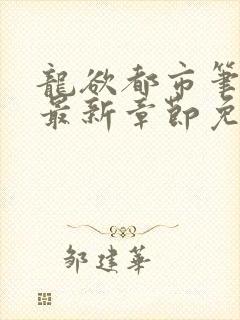 龍欲都市筆
最新章節免
邹建華